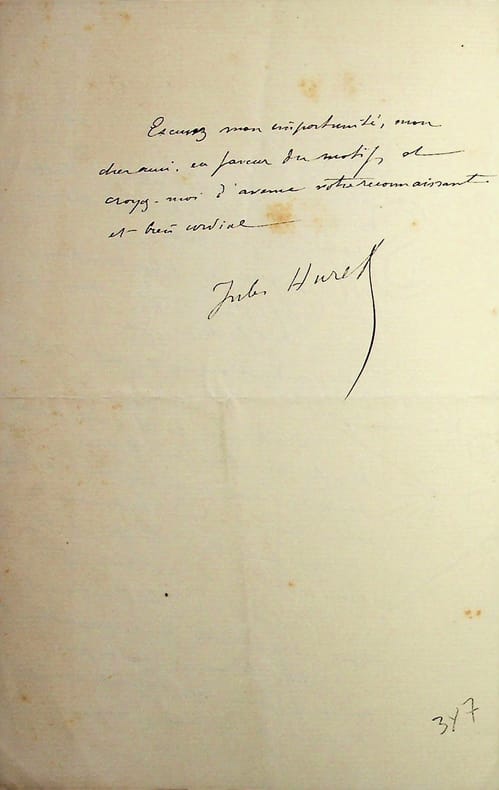 Excusez mon importunité, mon
cher ami, en faveur du motif, et
croyez-moi d'avance votre reconnaissant
et bien cordial
Jules Huret
347